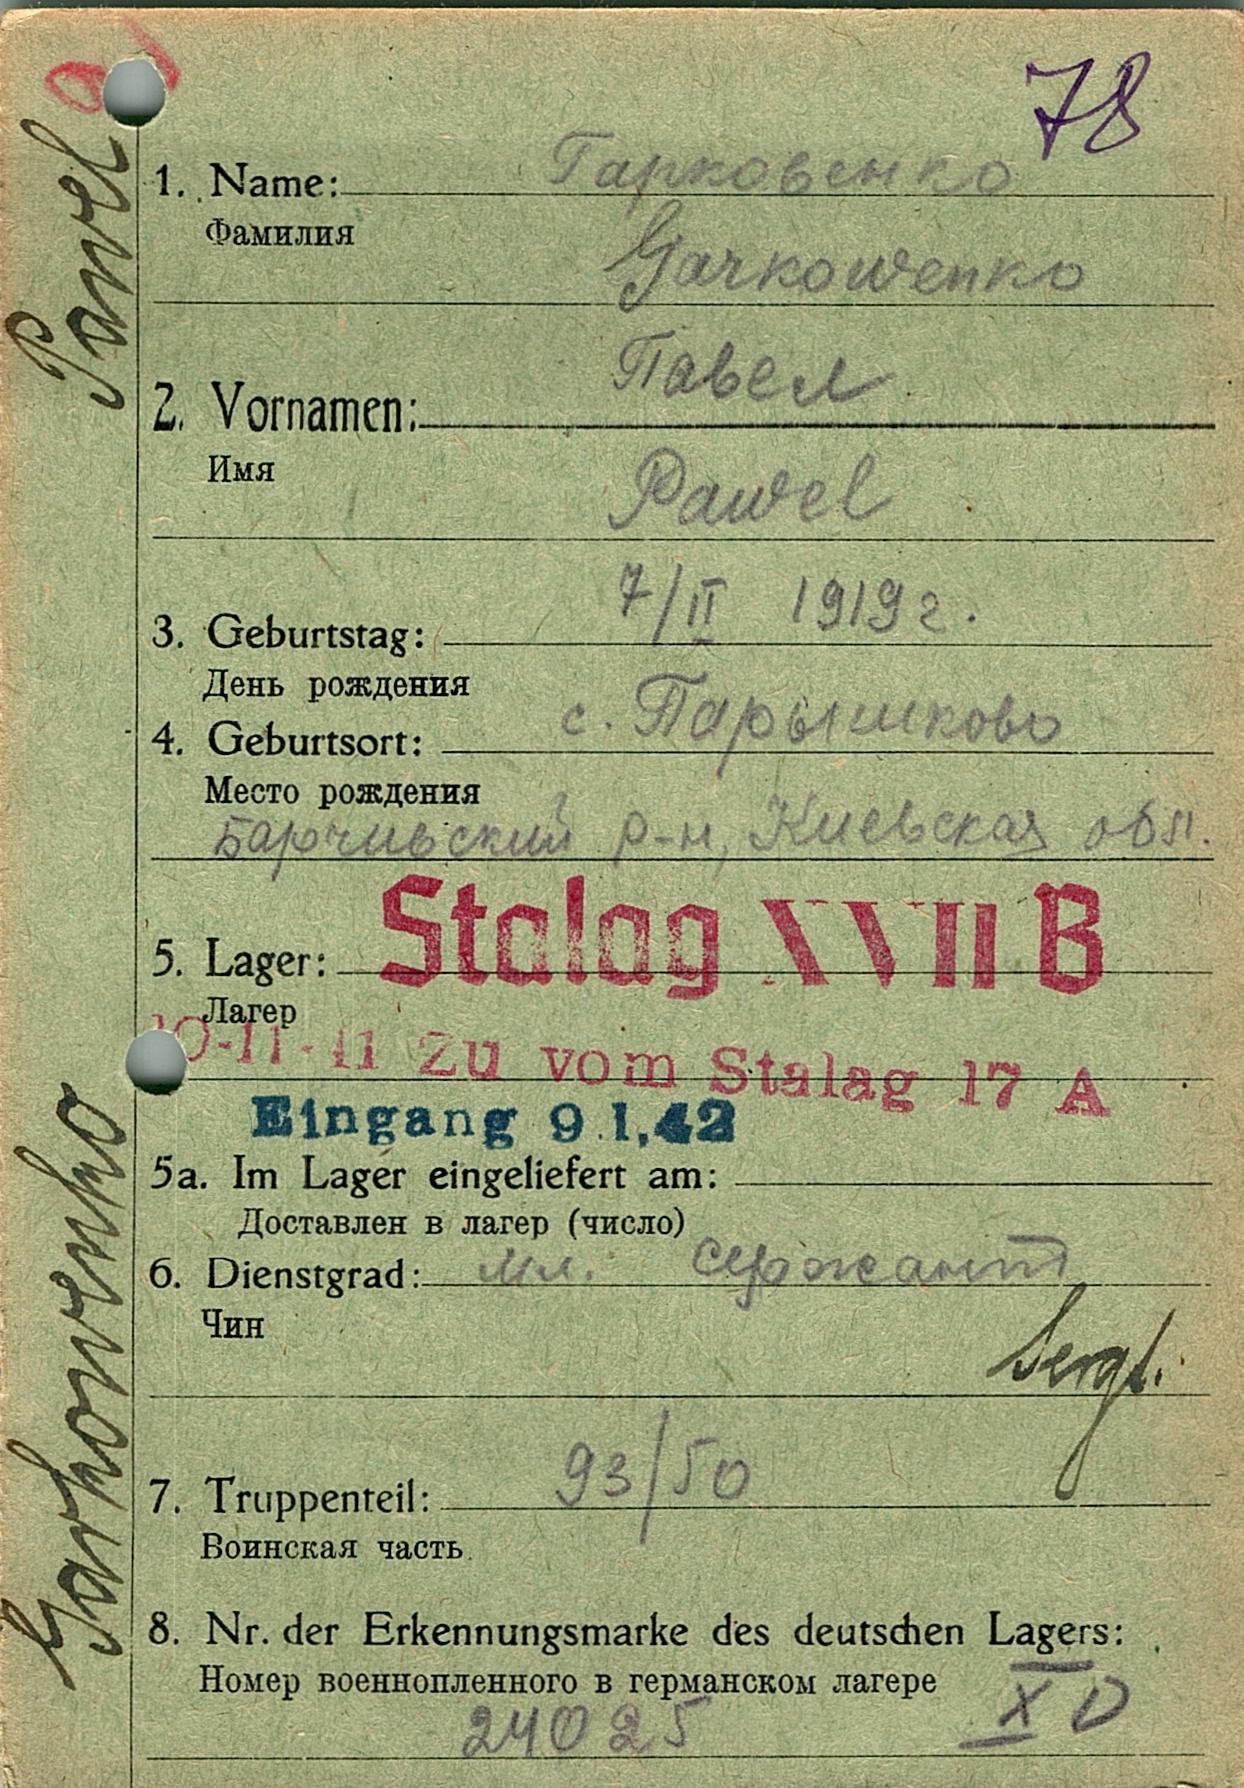 78
1. Name: Гарковенко
Фамилия
Garkowenko
Павел
2. Vornamen:
Имя
Pawel
7/II 1919 г.
3. Geburtstag:
День рождения
с. Парышково
4. Geburtsort:
Место рождения
Барчивский р-н, Киевская обл.
5. Lager: Stalag XVII B
Лагер
10-11-41 Zu vom Stalag 17 A
Eingang 9.1.42
5a. Im Lager eingeliefert am:
Доставлен в лагер (число)
6. Dienstgrad: мл. сержант
Чин
Sergt.
7. Truppenteil: 93/50
Воинская часть
8. Nr. der Erkennungsmarke des deutschen Lagers:
Номер военнопленного в германском лагере
24025 X D
Garkowenko Pawel